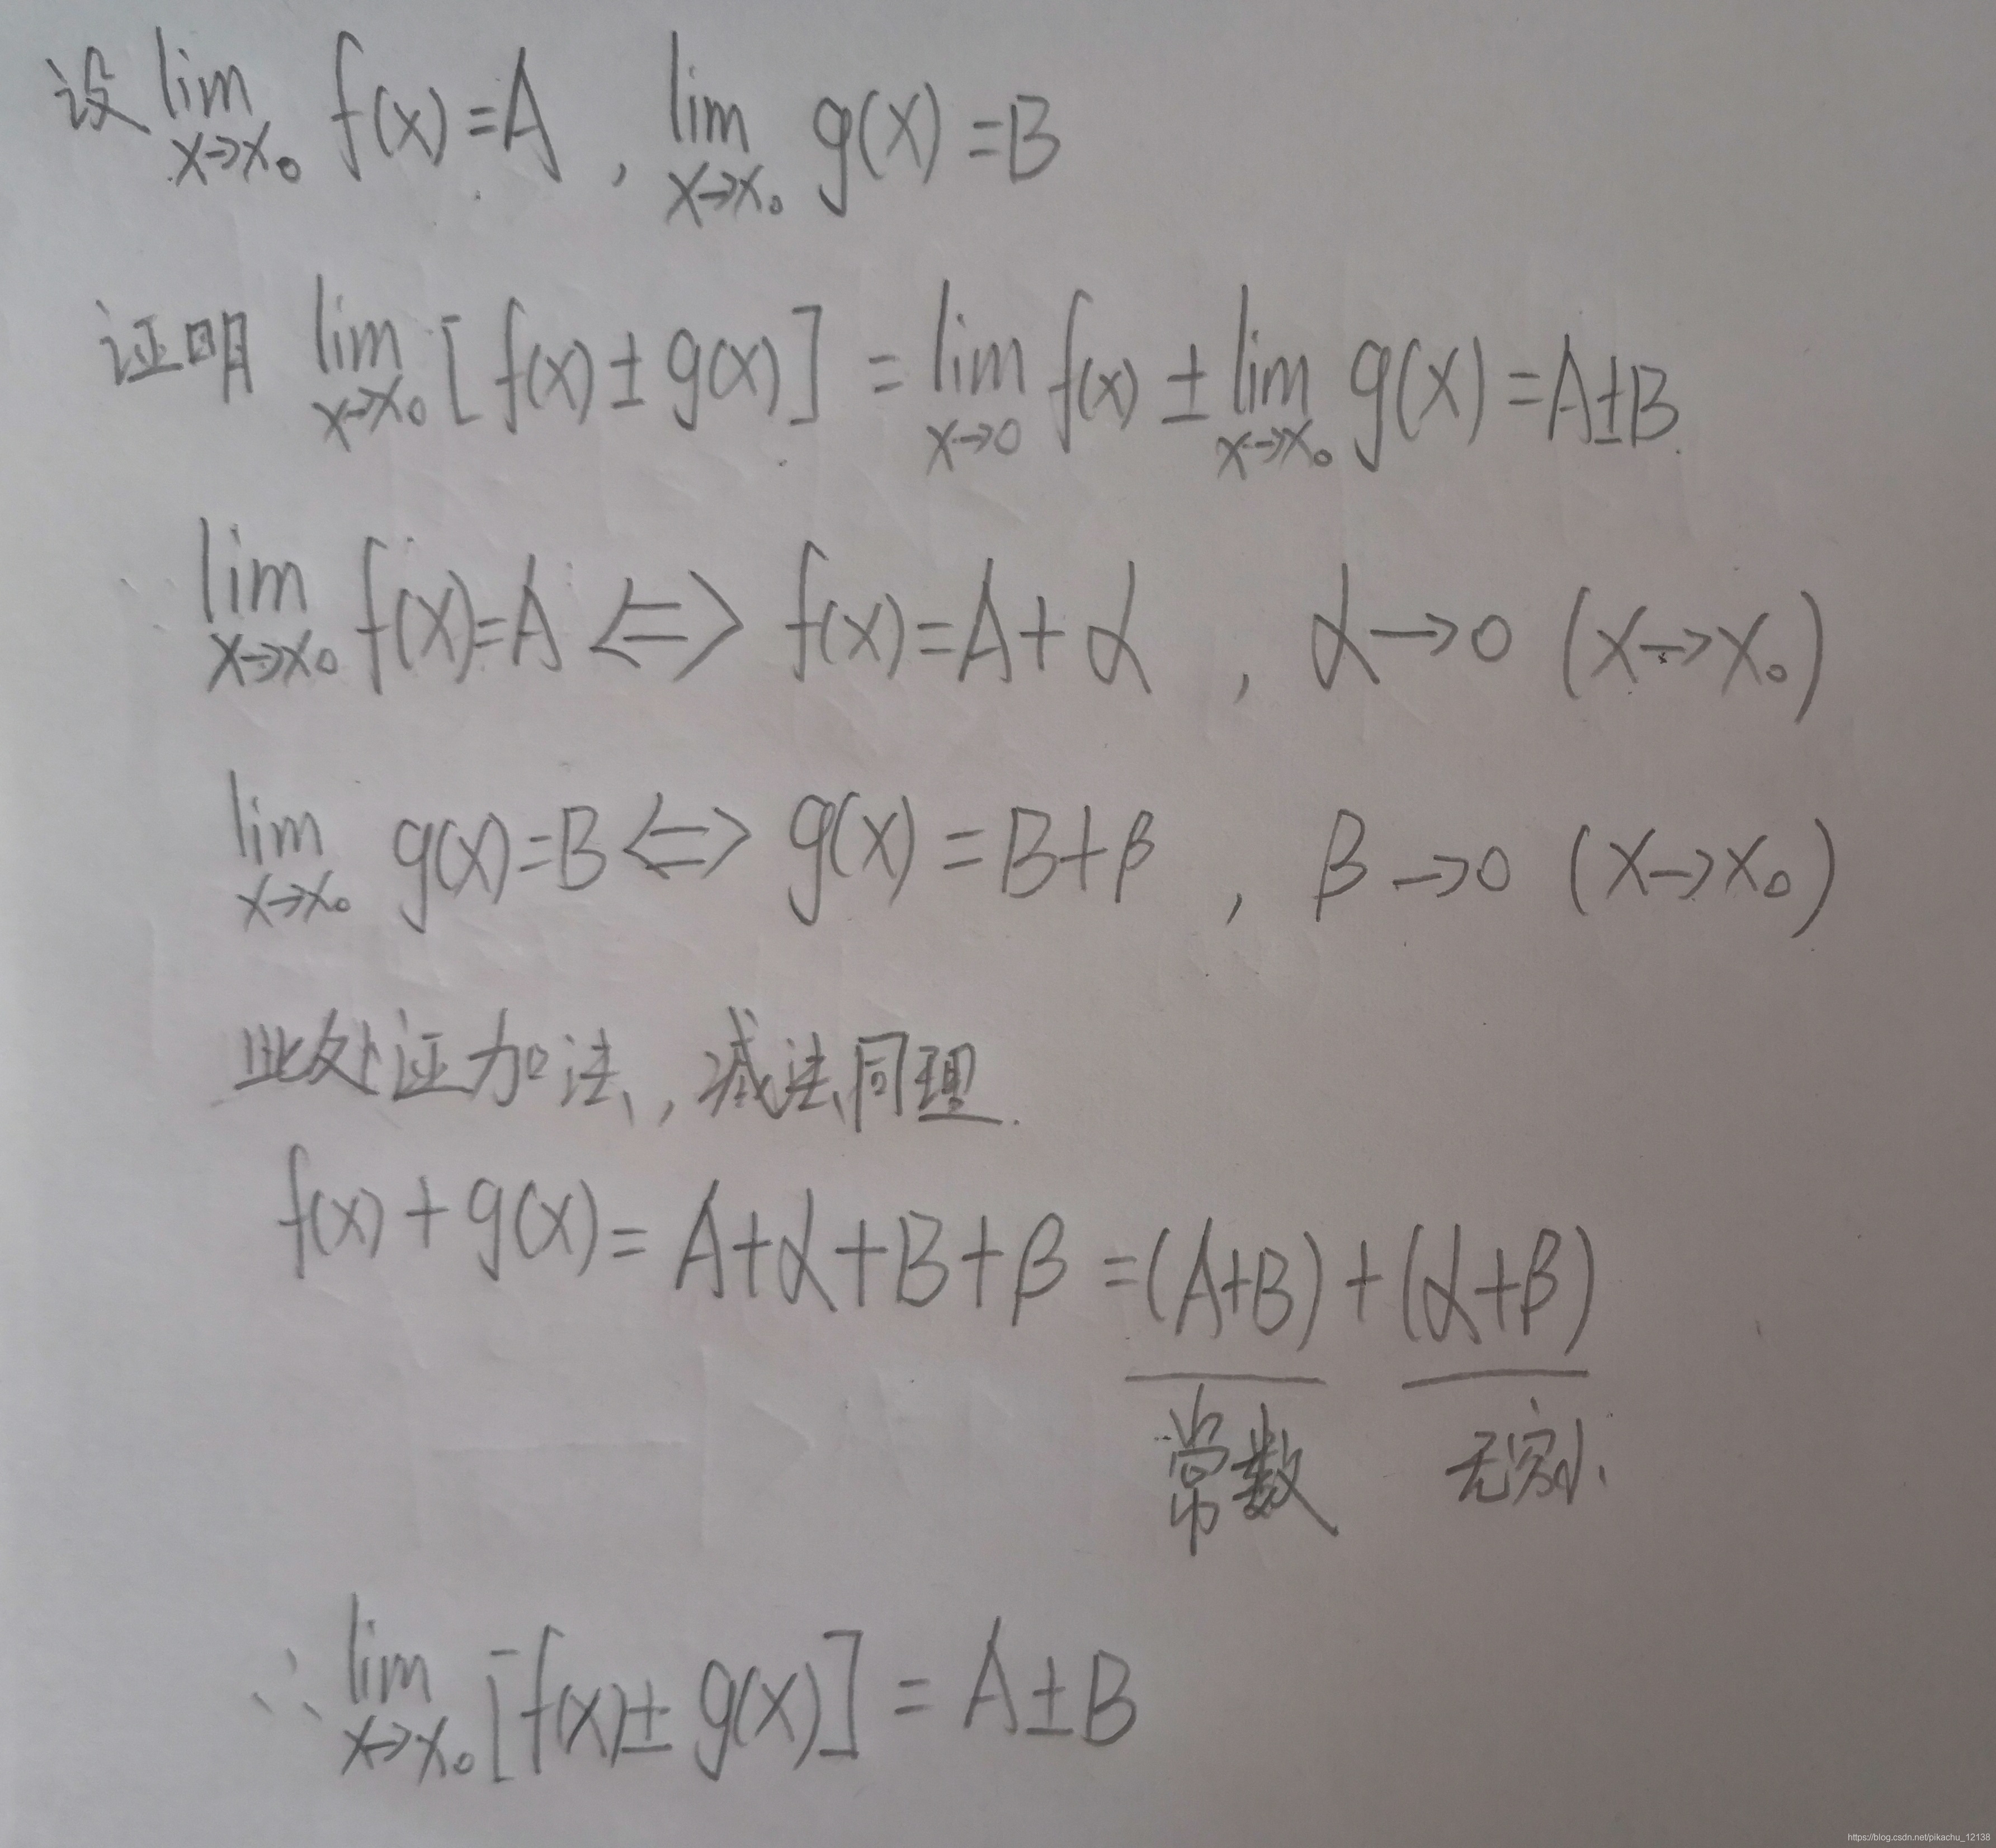 设 lim x→x₀ f(x)=A , lim x→x₀ g(x)=B
证明 lim x→x₀ [f(x)±g(x)] = lim x→0 f(x) ± lim x→x₀ g(x)=A±B.
∵ lim x→x₀ f(x)=A <=> f(x)=A+α , α→0 (x→x₀)
lim x→x₀ g(x)=B <=> g(x)=B+β , β→0 (x→x₀)
此处证加法,减法同理.
f(x)+g(x)= A+α+B+β =(A+B)+(α+β)
常数 无穷小
∴ lim x→x₀ [f(x)±g(x)] = A±B
https://blog.csdn.net/pikachu_12138